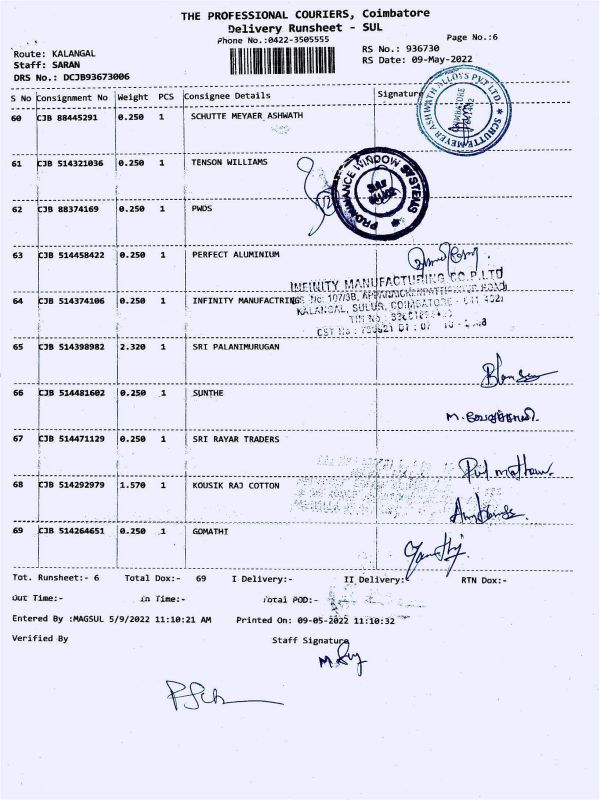 THE PROFESSIONAL COURIERS, Coimbatore
Delivery Runsheet - SUL
Phone No.:0422-3505555
Page No.:6
Route: KALANGAL
RS No.: 936730
Staff: SARAN
RS Date: 09-May-2022
DRS No.: DCJB93673006
S No Consignment No Weight PCS Consignee Details Signature
60 CJB 88445291 0.250 1 SCHUTTE MEYAER ASHWATH
SCHUTTE MEYER ASHWATH ALLOYS PVT LTD.
COIMBATORE
61 CJB 514321036 0.250 1 TENSON WILLIAMS
WINDOW SYSTEMS
62 CJB 88374169 0.250 1 PWDS
63 CJB 514458422 0.250 1 PERFECT ALUMINIUM
INFINITY MANUFACTURING CO.P.LTD
64 CJB 514374106 0.250 1 INFINITY MANUFACTRINGS
KALANGAL, SULUR, COIMBATORE
65 CJB 514398982 2.320 1 SRI PALANIMURUGAN
66 CJB 514481602 0.250 1 SUNTHE
67 CJB 514471129 0.250 1 SRI RAYAR TRADERS
68 CJB 514292979 1.570 1 KOUSIK RAJ COTTON
69 CJB 514264651 0.250 1 GOMATHI
Tot. Runsheet:- 6 Total Dox:- 69 I Delivery:- II Delivery:- RTN Dox:-
Out Time:- In Time:- Total POD:-
Entered By :MAGSUL 5/9/2022 11:10:21 AM Printed On: 09-05-2022 11:10:32
Verified By Staff Signature